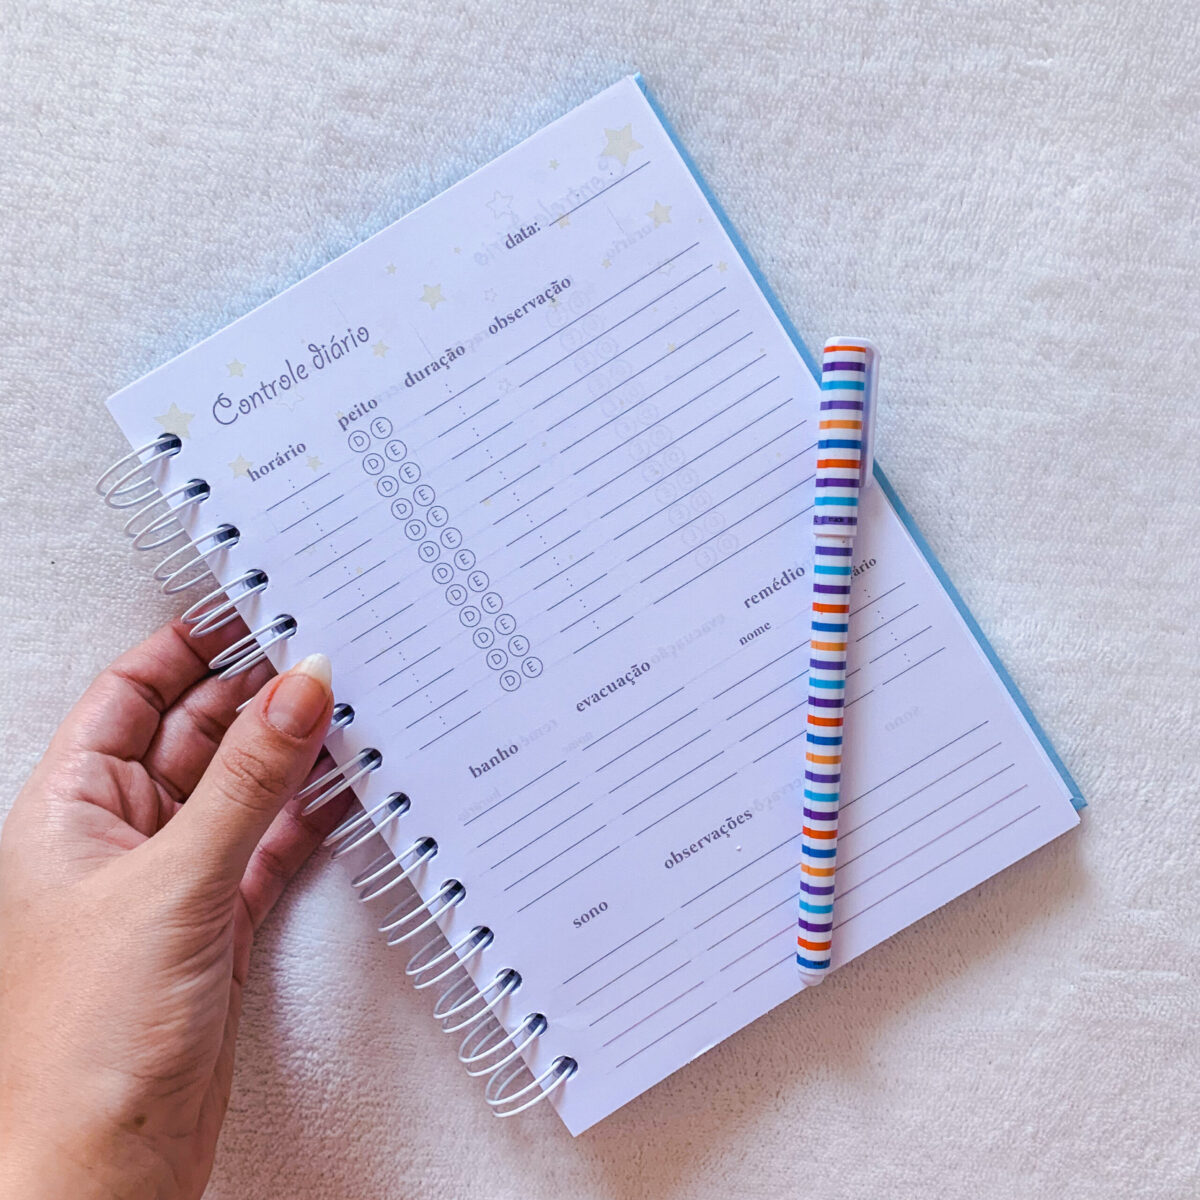 data:
Controle diário
horário peito duração observação
D E
D E
D E
D E
D E
D E
D E
D E
D E
D E
D E
D E
banho evacuação remédio
nome ário
sono observações